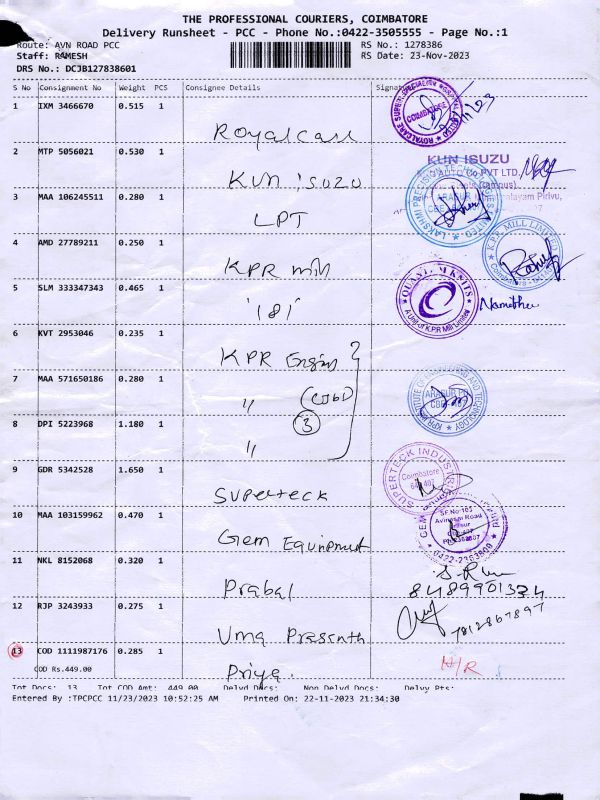 THE PROFESSIONAL COURIERS, COIMBATORE
Delivery Runsheet - PCC - Phone No.:0422-3505555 - Page No.:1
Route: AVN ROAD PCC RS No.: 1278386
Staff: RAMESH RS Date: 23-Nov-2023
DRS No.: DCJB127838601
S No Consignment No Weight PCS Consignee Details Signature
1 IXM 3466670 0.515 1
Royalcare
2 MTP 5056021 0.530 1
KUN ISUZU
KUN isuzu
3 MAA 106245511 0.280 1
LPT
4 AMD 27789211 0.250 1
KPR mill
5 SLM 333347343 0.465 1
'181' Namitha
6 KVT 2953046 0.235 1
KPR Engin
7 MAA 571650186 0.280 1
"
8 DPI 5223968 1.180 1
3
"
9 GDR 5342528 1.650 1
SUPERTECK INDUSTR
Coimbatore
Superteck
10 MAA 103159962 0.470 1
SF.No-165
Avinassi Road
0422-2363800
Gem Equipment
11 NKL 8152068 0.320 1
Prabal 8489901324
12 RJP 3243933 0.275 1
7812867897
Uma Prasanth
13 COD 1111987176 0.285 1
COD Rs.449.00 N/R
Priya
Tot Docs: 13 Tot COD Amt: 449.00 Delvd Docs: Non Delvd Docs: Delvy Pts:
Entered By :TPCPCC 11/23/2023 10:52:25 AM Printed On: 22-11-2023 21:34:30